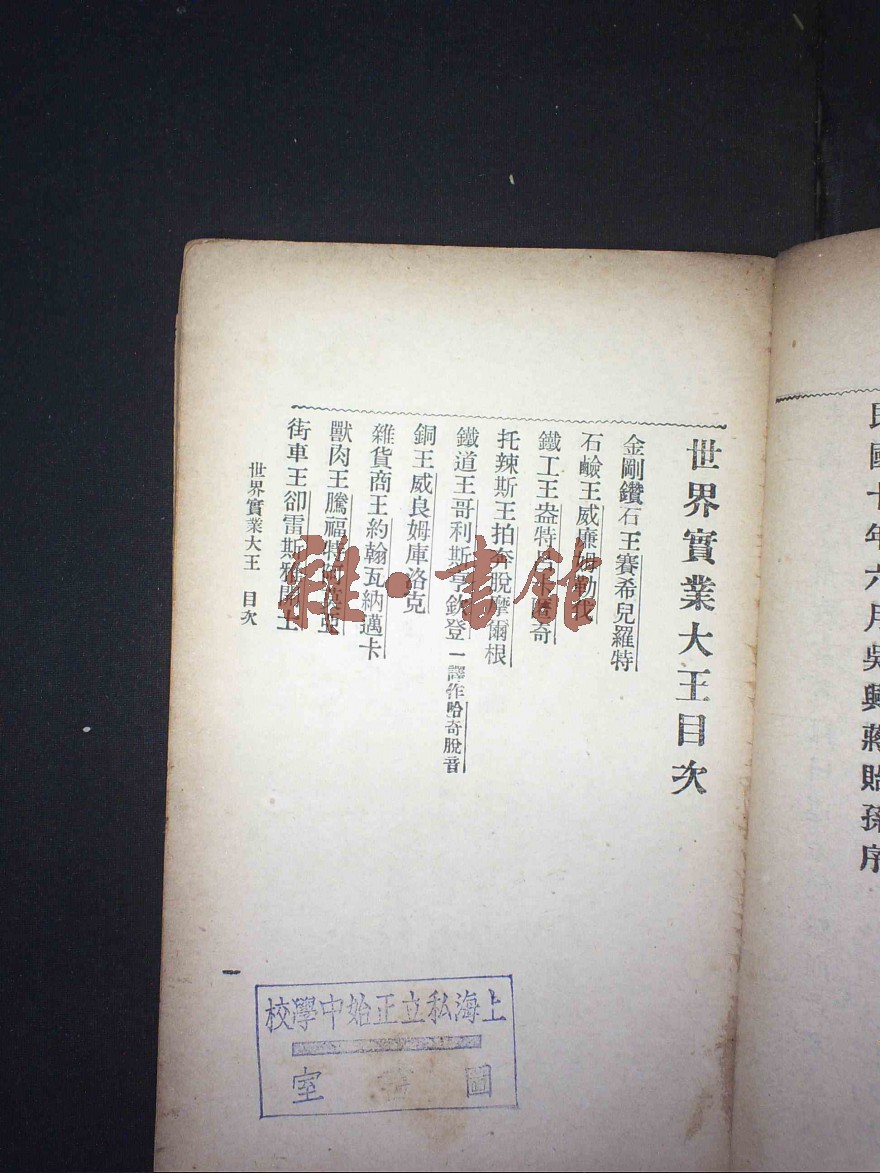 民國十年六月吳興蔣貽孫序
世界實業大王目次
金剛鑽石王賽希兒羅特
石鹼王威廉勒我
鐵工王盎特奇
托辣斯王拍脫摩爾根
鐵道王哥利斯亨欽登 一譯作哈奇脫音
銅王威良姆庫洛克
雜貨商王約翰瓦納邁卡
獸肉王騰福特
街車王卻雷斯雅
世界實業大王 目次
一
上海私立正始中學校
圖書室
雜·書館